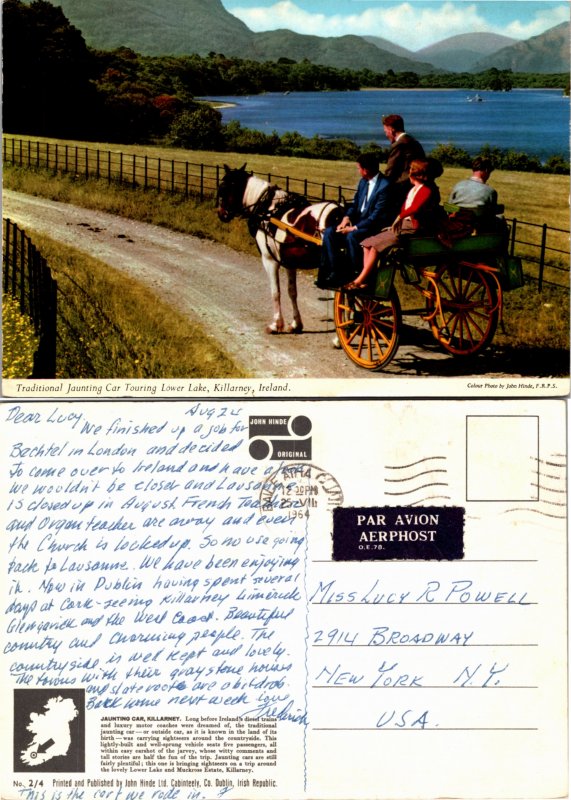 Traditional Jaunting Car Touring Lower Lake, Killarney, Ireland.
Colour Photo by John Hinde, F.R.P.S.
Dear Lucy, Aug 24
We finished up a job for
Bechtel in London and decided
to come over to Ireland and have a look
we wouldn't be closer and Lausanne
is closed up in August. French Teacher
and Organ teacher are away and even
the Church is locked up. So no use going
back to Lausanne. We have been enjoying
it. Now in Dublin having spent several
days at Cork - seeing Killarney Limerick
Glengarick and the West Coast. Beautiful
country and charming people. The
countryside is well kept and lovely.
The towns with their gray stone houses
and slate roofs are a bit drab.
Back home next week. Love
Frederick
JOHN HINDE
ORIGINAL
12 30PM
25 VIII
1964
PAR AVION
AERPHOST
O.E.78.
MISS LUCY R POWELL
2914 BROADWAY
NEW YORK N.Y.
USA.
JAUNTING CAR, KILLARNEY. Long before Ireland's diesel trains
and luxury motor coaches were dreamed of, the traditional
jaunting car — or outside car, as it is known in the land of its
birth — was carrying sightseers around the countryside. This
lightly-built and well-sprung vehicle seats five passengers, all
within easy earshot of the jarvey, whose witty comments and
tall stories are half the fun of the trip. Jaunting cars are still
fairly plentiful; this one is bringing sightseers on a trip around
the lovely Lower Lake and Muckross Estate, Killarney.
No. 2/4 Printed and Published by John Hinde Ltd. Cabinteely, Co. Dublin, Irish Republic.
This is the cart we rode in.